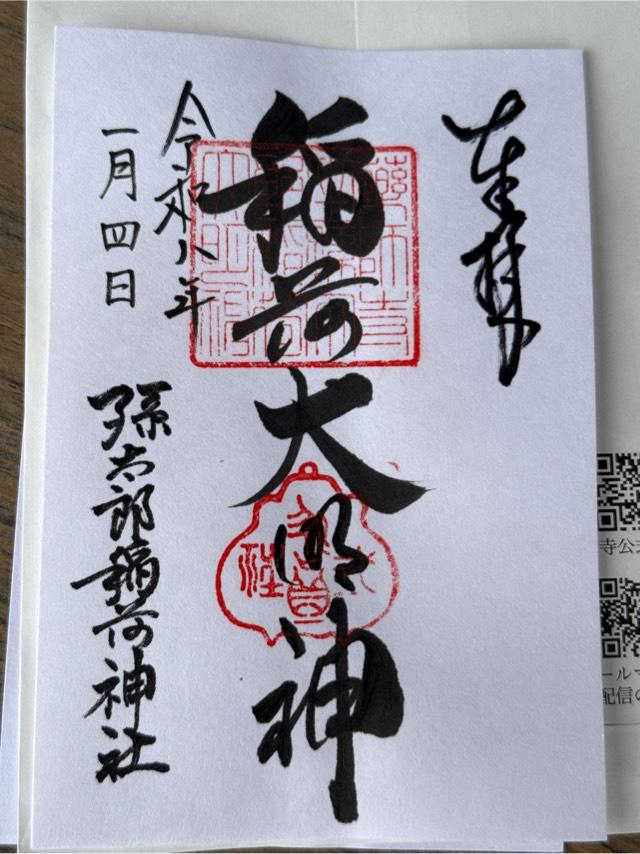 奉拝
稲荷大明神
令和八年
一月四日
孫太郎稲荷神社
寺公式
ールマ
配信の